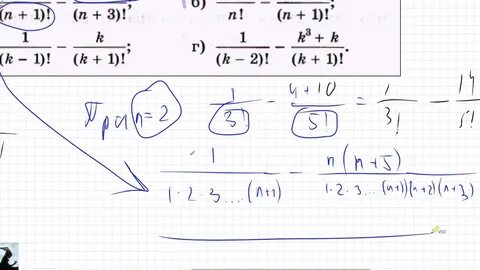 (n + 1)! − (n + 3)! ; б) n! − (n + 1)! ;
1/(k − 1)! − k/(k + 1)! ; г) 1/(k − 2)! − (k³ + k)/(k + 1)! .
При n=2 1/3! − (4+10)/5! = 1/3! − 14/5!
1/(1·2·3...(n+1)) − n(n+5)/(1·2·3...(n+1)(n+2)(n+3))